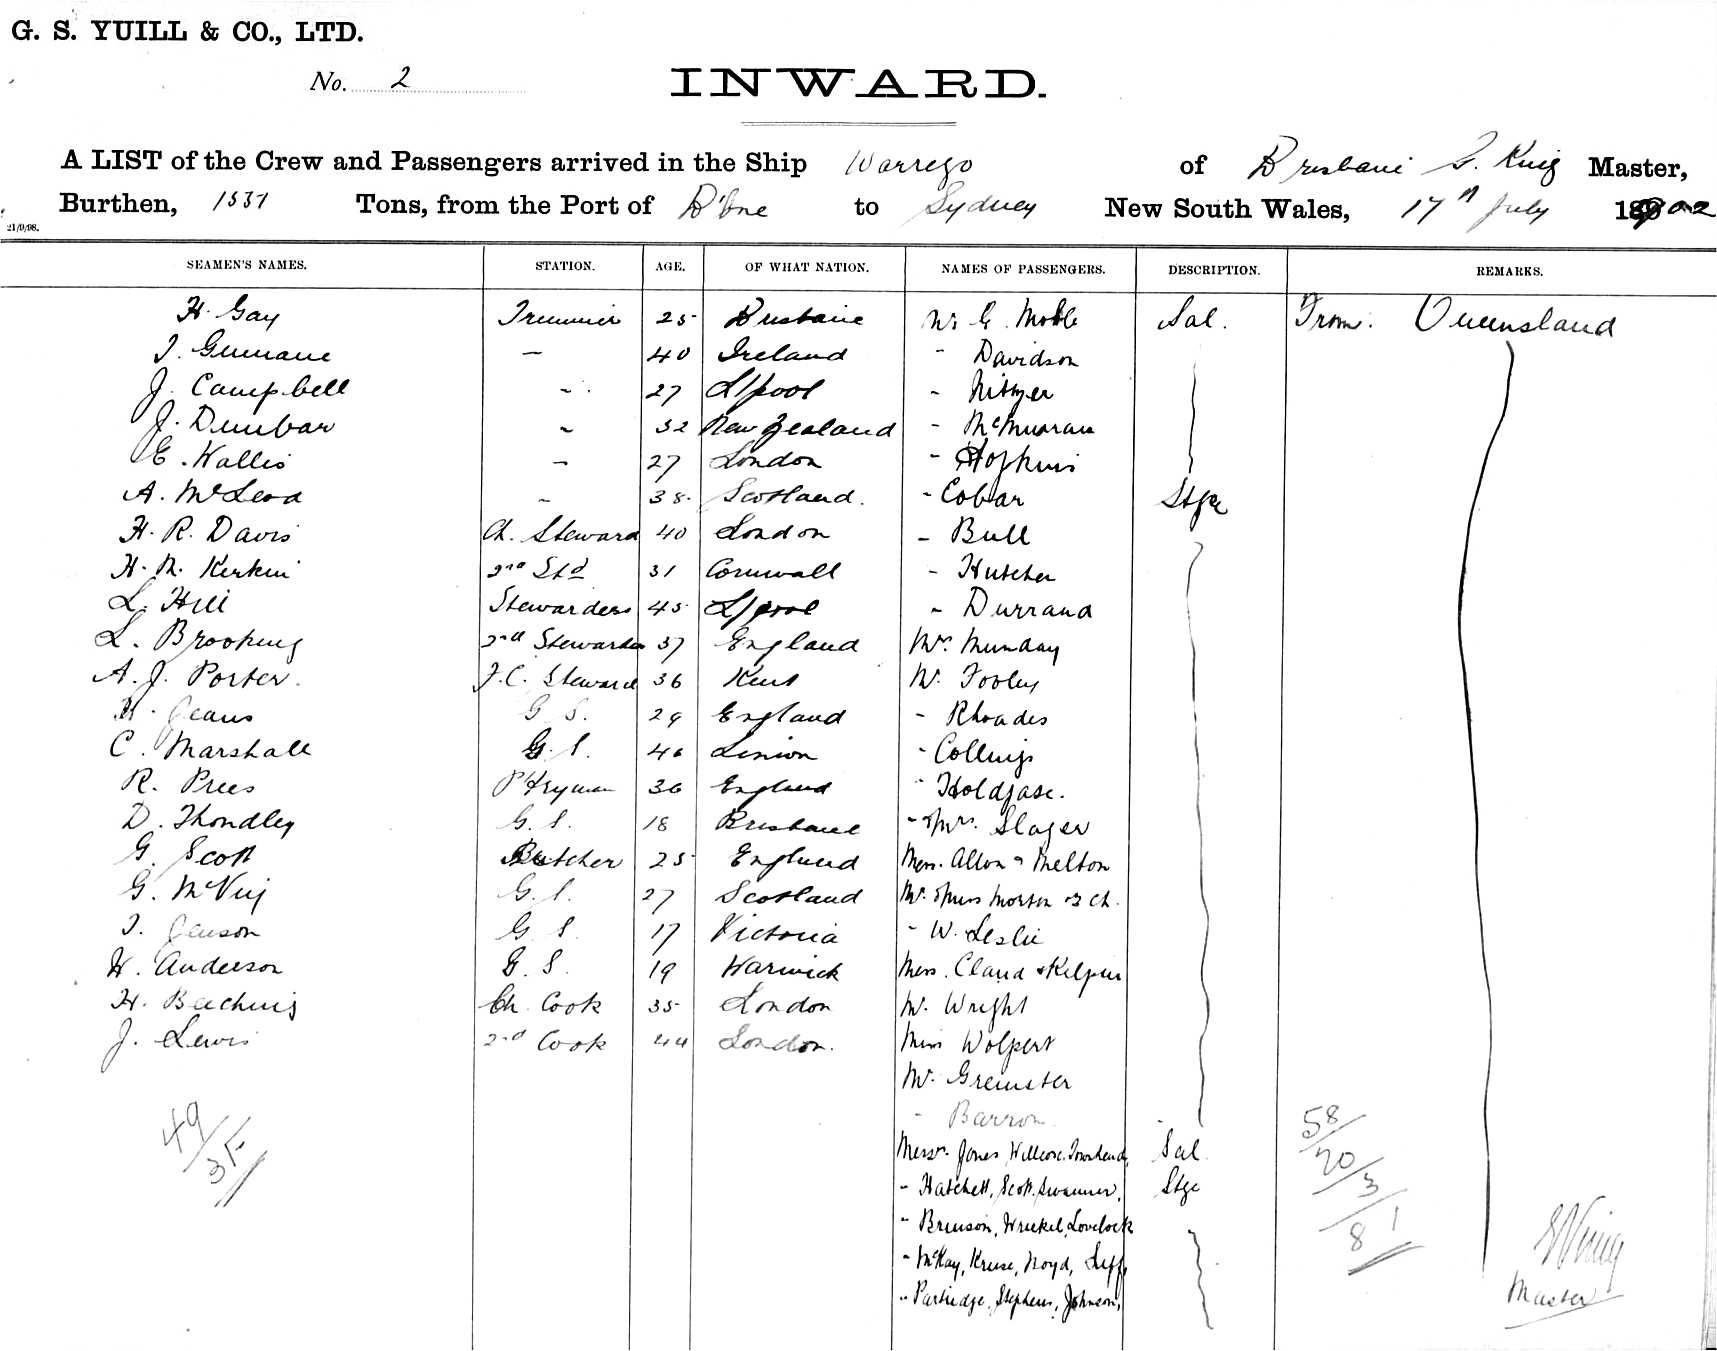 G. S. YUILL & CO., LTD.
No. 2
INWARD.
A LIST of the Crew and Passengers arrived in the Ship Warrego of Brisbane G. King Master,
Burthen, 1537 Tons, from the Port of B'bne to Sydney New South Wales, 17th July 1902
21/9/98.
SEAMEN'S NAMES. STATION. AGE. OF WHAT NATION. NAMES OF PASSENGERS. DESCRIPTION. REMARKS.
H. Gay Trimmer 25 Brisbane Mr G. Sal. From Queensland
T. — 40 Ireland " Davidson
J. Campbell " 27 L/pool "
J. Dunbar " 32 New Zealand "
E. Wallis — 27 London " Hopkins
A. McLeod " 38 Scotland. " Cobar Stge
H. R. Davis Ch. Steward 40 London " Bull
H. M. Kerkin 2nd Std 31 Cornwall " Hutcher
L. Hill Stewardess 45 L/pool " Durrand
L. Brooking 2nd Stewardess 37 England Mrs Munday
A. J. Porter. F.C. Steward 36 Kent Mr. Tooley
H. Jeans G S. 29 England " Rhoades
C. Marshall G. S. 46 " Collings
R. Prees P'tryman 36 England " Holdfast.
D. Thondley G. S. 18 Brisbane " & Mrs. Slager
G. Scott Butcher 25 England Mess. Allon & Melton
G. McVey G. S. 27 Scotland Mr. & Miss Morton & 3 ch.
T. Jenson G S. 17 Victoria " W. Leslie
W. Anderson G. S. 19 Warwick Mess. Claud & Kilpin
H. Beeching Ch. Cook 35 London Mr. Wright
J. Lewis 2nd Cook 44 London. Miss Wolpert
Mr. Greinster
" Barron
Messrs. Jones Willcox. Townhend, Sal.
" Hatchett, Scott, Swanner, Stge
" Brinson, Wrickel, Lovelock
" McKay, Kruse, Noyd,
" Partridge, Stephens, Johnson,
49/35
58/20/3/1
81
G King
Master